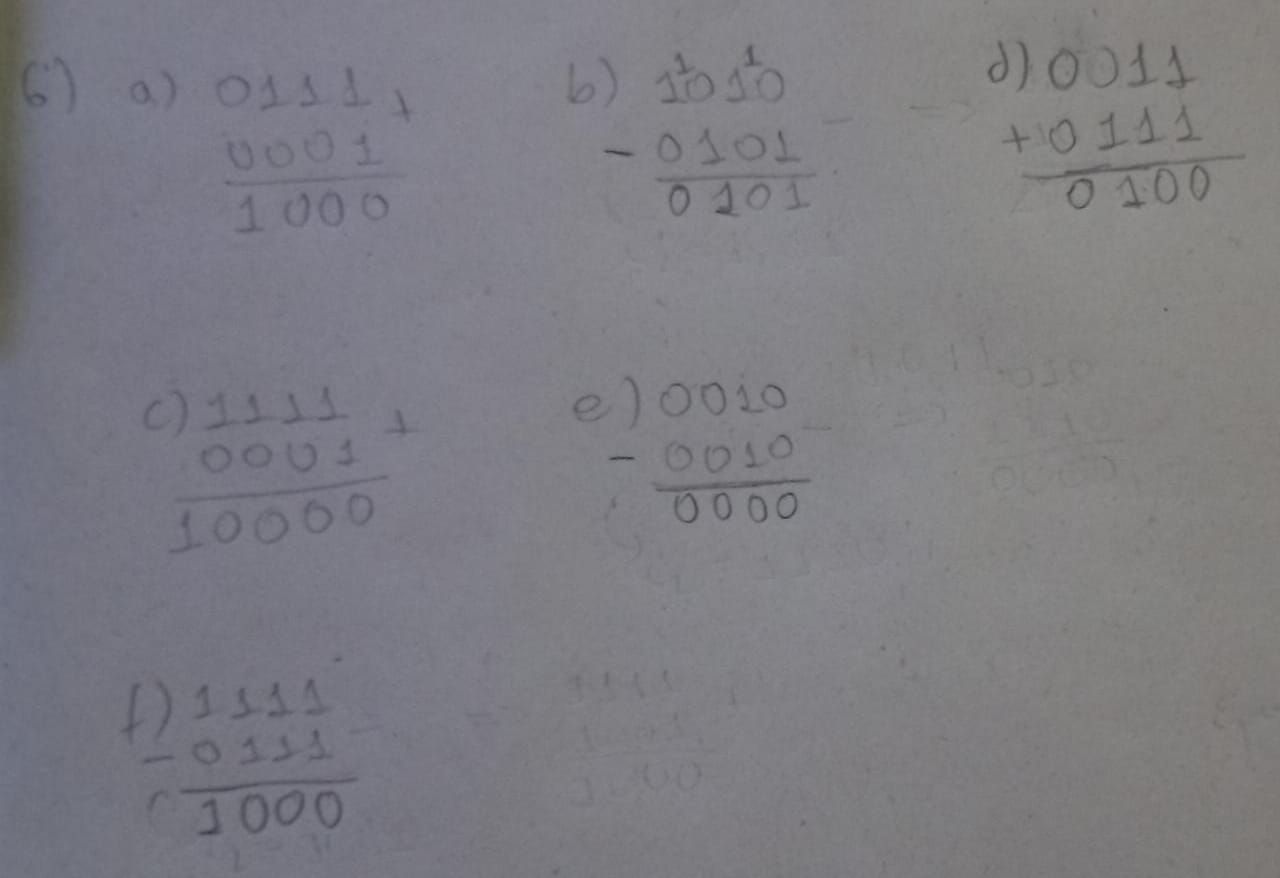 6) a) 0111 +
0001
1000
b) 1010
- 0101
0101
d) 0011
+ 0111
0100
c) 1111 +
0001
10000
e) 0010
- 0010
0000
f) 1111
- 0111
1000